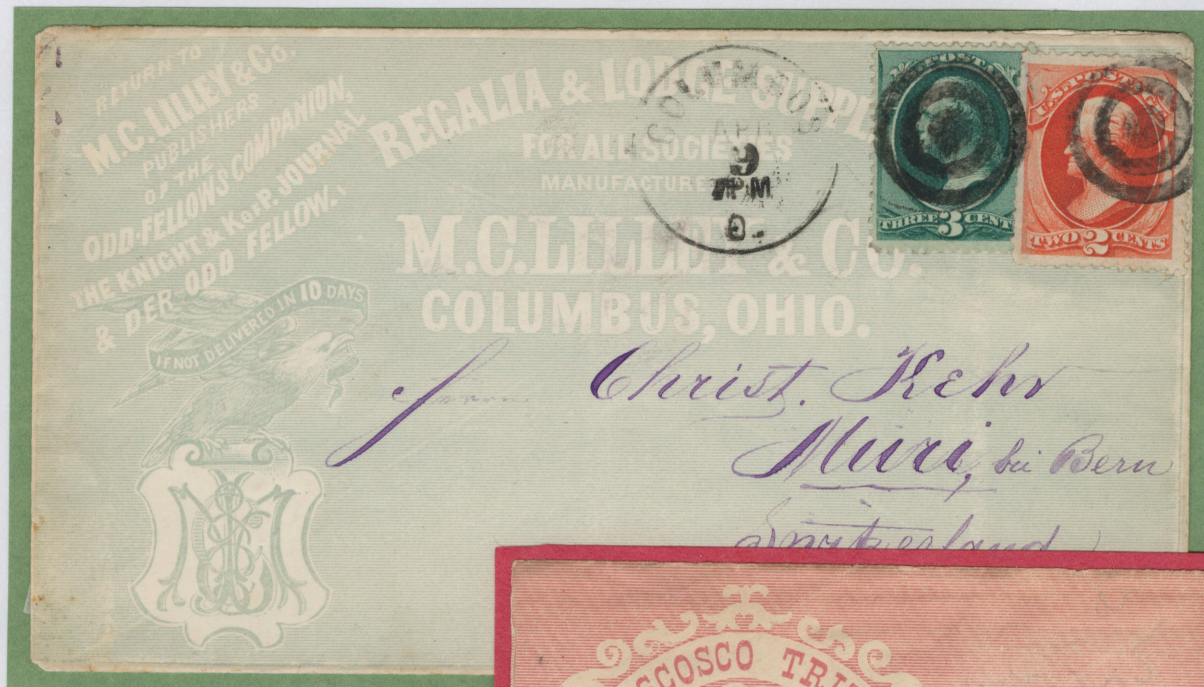 RETURN TO
M.C. LILLEY & CO.
PUBLISHERS
OF THE
ODD-FELLOWS COMPANION,
THE KNIGHT & K OF P. JOURNAL
& DER ODD FELLOW.
IF NOT DELIVERED IN 10 DAYS
REGALIA & LODGE SUPPL
FOR ALL SOCIETIES
MANUFACTURE
M.C. LILLEY & CO.
COLUMBUS, OHIO.
COLUMBUS
APR
9
P.M.
O.
U.S. POSTAGE
THREE 3 CENT
U.S. POSTAGE
TWO 2 CENTS
Herrn Christ. Kehr
Muri, bei Bern
Switzerland
COSCO TRI